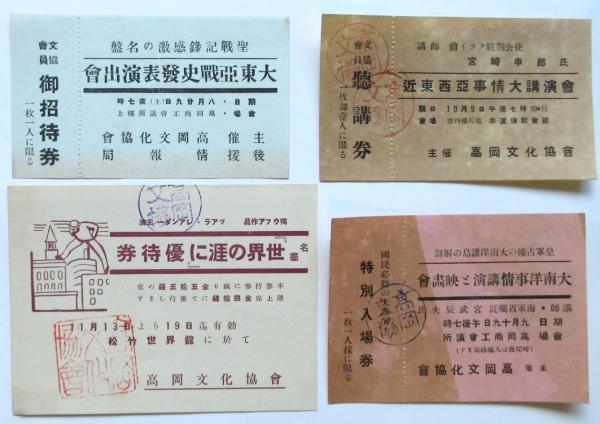 文協會員
御招待券
一枚一人に限る
聖戰記錄感激の名盤
大東亞戰史發表演出會
期日・八月廿九日(土)夜七時
會場・高岡商工會議所樓上
主催 高岡文化協會
後援 情報局
文協會員
聽講券
一枚御壹人に限る
講師 前イラク駐剳公使
宮崎申郎氏
近東西亞事情大講演會
期日 10月9日午後七時
會場
主催 高岡文化協會
高岡文協
獨ウファ作品 ツアラ・レアンダー主演
名畫『世界の涯に』優待券
本券持参に限り金五拾五錢の處
階上席金四拾錢にて優待します
11月13日より19日迄有効
松竹世界舘に於て
高岡文化協會
特別入場券
一枚一人様に限る
高岡文協
皇軍占據の大南洋諸島の解剖
大南洋事情講演と映畫會
講師・海軍省囑託 宮武辰夫氏
期日 九月十九日午後七時
會場 高岡商工會議所
主催 高岡文化協會